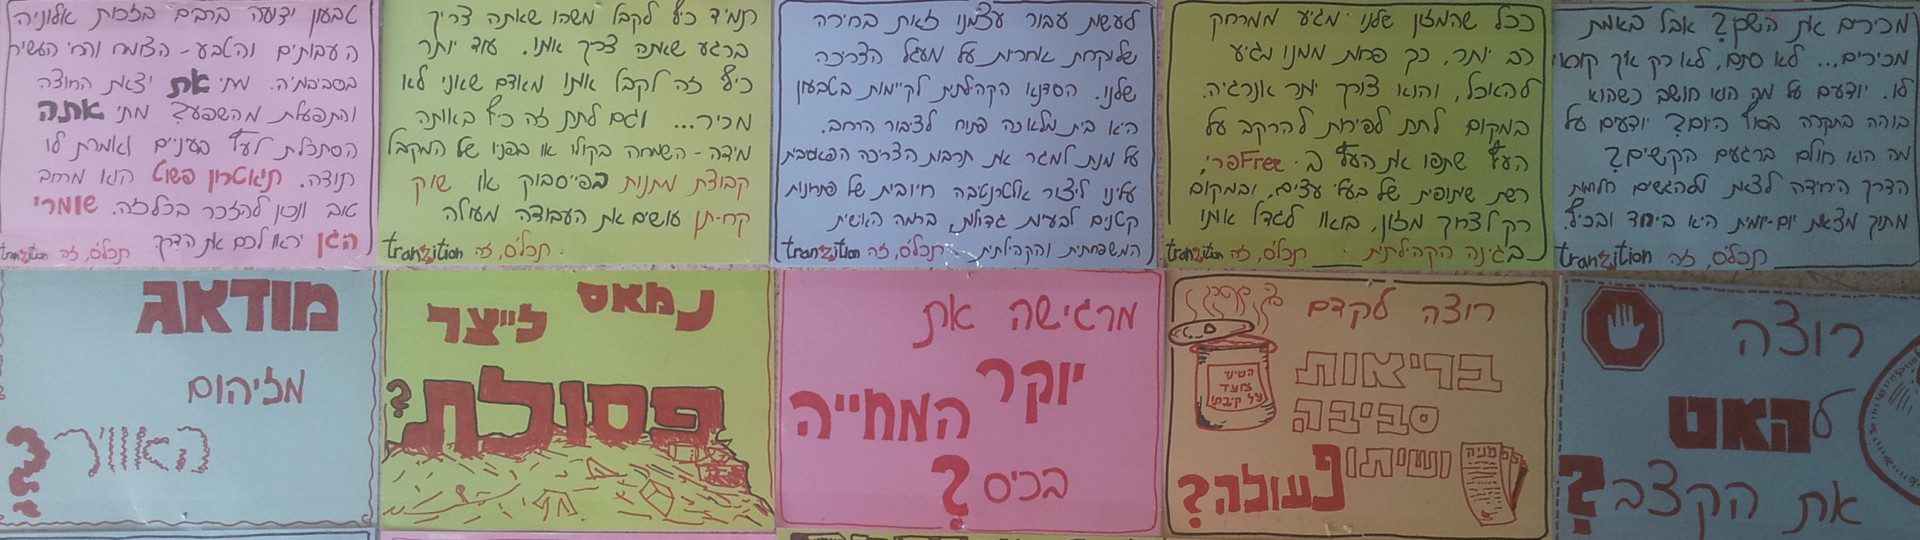 מכירים את השם? אבל באמת
מכירים... לא סתם, לא רק איך קוראים
לו. יודעים על מה הוא חושב כשהוא
בוהה בתקרה בסוף היום? יודעים על
מה הוא חולם ברגעים הקשים?
הדרך היחידה לצאת ולהגשים חלומות
מתוך מצאת יום-יומית היא ביחד ובכיף.
תכל'ס, זה tranzition
ככל שהמזון שלנו מגיע ממרחק
רב יותר, כך פחות ממנו מגיע
להאכל, והוא צורך יותר אנרגיה.
במקום לתת לפירות להרקב על
העץ שתפו את העץ ב - Freeפרי,
רשת שתופית של בעלי עצים. ובמקום
רק לצרוך מזון, בואו לגדל אותו
בגינה הקהילתית תכל'ס, זה tranzition
לעשות עבור עצמנו זאת בחירה
שלוקחת אחריות על מעגל הצריכה
שלנו. הסדנא הקהילתית לקיימות בטבעון
היא בית מלאכה פתוח לציבור הרחב.
על מנת למגר את תרבות הצריכה הפאסיבית
עלינו ליצור אלטרנטיבה חיובית של פתרונות
קטנים לבעיות גדולות, ברמה האישית
המשפחתית והקהילתית תכל'ס, זה tranzition
תמיד כיף לקבל משהו שאתה צריך
ברגע שאתה צריך אותו. עוד יותר
כיף זה לקבל אותו מאדם שאני לא
מכיר... וגם לתת זה כיף באותה
מידה - השמחה בקולו או בפניו של המקבל
קבוצת מתנות בפייסבוק או שוק
קח-תן עושים את העבודה מעולה
תכל'ס, זה tranzition
טבעון ידועה ברבים בזכות אלוניה
העבותים והטבע - הצומח והחי העשיר
בסביבתיה. מתי את יצאת החוצה
והתפעלת מהשפע? מתי אתה
הסתכלת לעץ בעניים ואמרת לו
תודה. תיאטרון פשוט הוא מרחב
טוב ונכון להזכר בכל זה. שומרי
הגן יראו לכם את הדרך
תכל'ס, זה tranzition
רוצה
להאט
את הקצב?
רוצה לקדם
בריאות
סביבה
ושיתוף
פעולה?
הצבא
צועד
על קיבתו
מרגישה את
יוקר
המחייה
בכיס?
נמאס
לייצר
פסולת?
מודאג
מזיהום
האוויר?